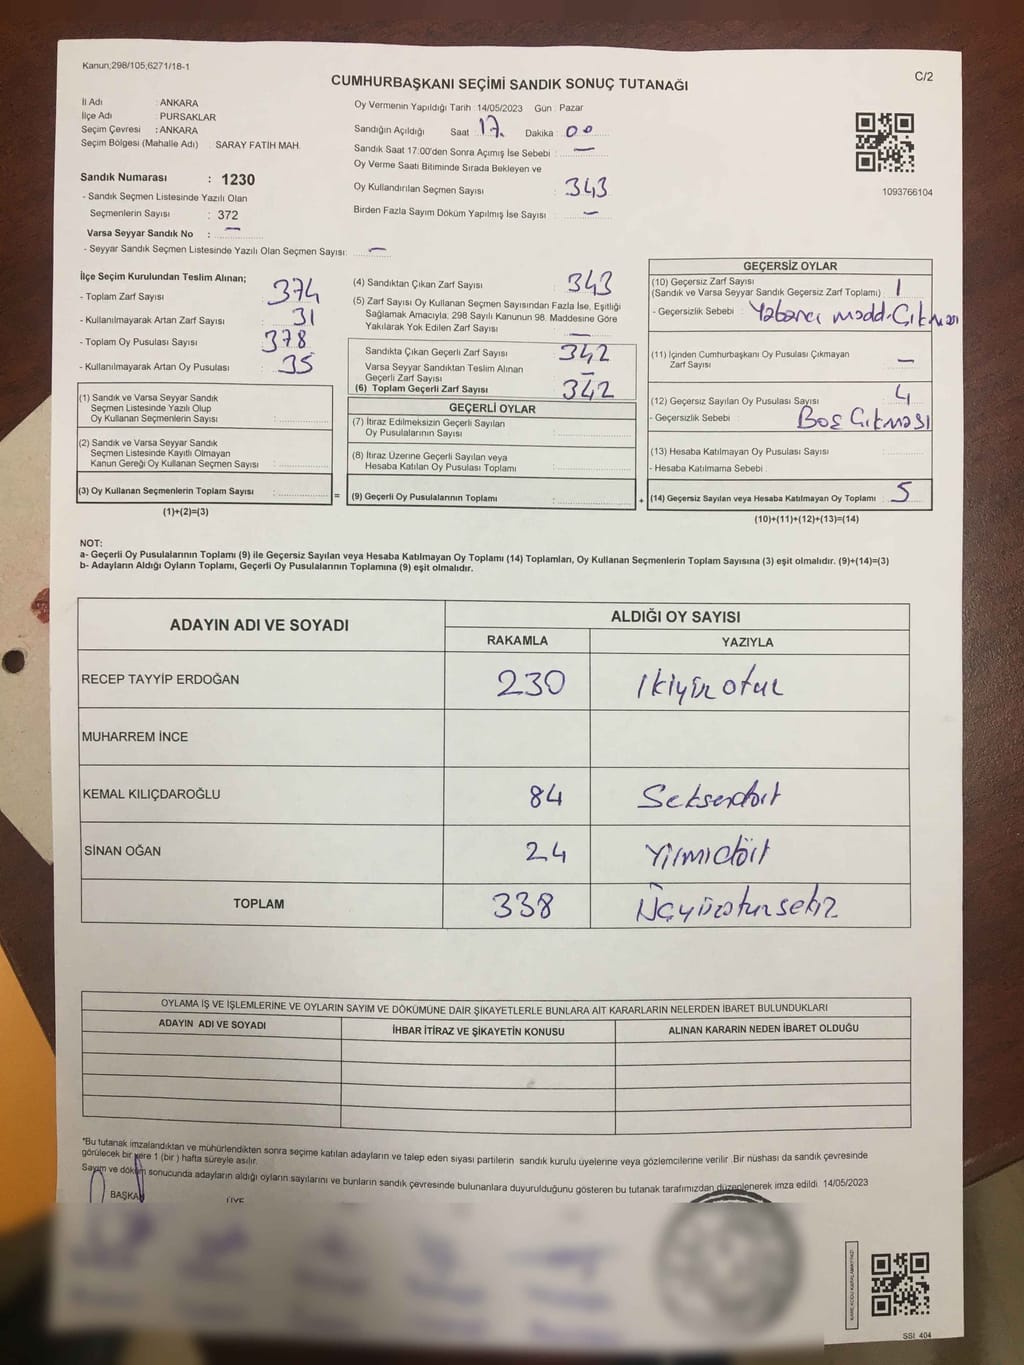 Kanun;298/105,6271/18-1
C/2
CUMHURBAŞKANI SEÇİMİ SANDIK SONUÇ TUTANAĞI
İl Adı : ANKARA
İlçe Adı : PURSAKLAR
Seçim Çevresi : ANKARA
Seçim Bölgesi (Mahalle Adı) : SARAY FATİH MAH.
Oy Vermenin Yapıldığı Tarih : 14/05/2023 Gün : Pazar
Sandığın Açıldığı Saat : 17. Dakika : 00
Sandık Saat 17:00'den Sonra Açımış İse Sebebi : —
Oy Verme Saati Bitiminde Sırada Bekleyen ve
Oy Kullandırılan Seçmen Sayısı : 343
Birden Fazla Sayım Döküm Yapılmış İse Sayısı : —
1093766104
Sandık Numarası : 1230
- Sandık Seçmen Listesinde Yazılı Olan
Seçmenlerin Sayısı : 372
Varsa Seyyar Sandık No : —
- Seyyar Sandık Seçmen Listesinde Yazılı Olan Seçmen Sayısı: —
İlçe Seçim Kurulundan Teslim Alınan;
- Toplam Zarf Sayısı : 374
- Kullanılmayarak Artan Zarf Sayısı : 31
- Toplam Oy Pusulası Sayısı : 378
- Kullanılmayarak Artan Oy Pusulası : 35
(1) Sandık ve Varsa Seyyar Sandık
Seçmen Listesinde Yazılı Olup
Oy Kullanan Seçmenlerin Sayısı :
(2) Sandık ve Varsa Seyyar Sandık
Seçmen Listesinde Kayıtlı Olmayan
Kanun Gereği Oy Kullanan Seçmen Sayısı :
(3) Oy Kullanan Seçmenlerin Toplam Sayısı :
(1)+(2)=(3)
(4) Sandıktan Çıkan Zarf Sayısı : 343
(5) Zarf Sayısı Oy Kullanan Seçmen Sayısından Fazla İse, Eşitliği
Sağlamak Amacıyla, 298 Sayılı Kanunun 98. Maddesine Göre
Yakılarak Yok Edilen Zarf Sayısı : —
Sandıkta Çıkan Geçerli Zarf Sayısı : 342
Varsa Seyyar Sandıktan Teslim Alınan
Geçerli Zarf Sayısı : —
(6) Toplam Geçerli Zarf Sayısı : 342
GEÇERLİ OYLAR
(7) İtiraz Edilmeksizin Geçerli Sayılan
Oy Pusulalarının Sayısı :
(8) İtiraz Üzerine Geçerli Sayılan veya
Hesaba Katılan Oy Pusulası Toplamı :
= (9) Geçerli Oy Pusulalarının Toplamı : +
GEÇERSİZ OYLAR
(10) Geçersiz Zarf Sayısı
(Sandık ve Varsa Seyyar Sandık Geçersiz Zarf Toplamı) : 1
- Geçersizlik Sebebi : Yabancı madd. Çıkması
(11) İçinden Cumhurbaşkanı Oy Pusulası Çıkmayan
Zarf Sayısı : —
(12) Geçersiz Sayılan Oy Pusulası Sayısı : 4
- Geçersizlik Sebebi : Boş Çıkması
(13) Hesaba Katılmayan Oy Pusulası Sayısı :
- Hesaba Katılmama Sebebi :
(14) Geçersiz Sayılan veya Hesaba Katılmayan Oy Toplamı : 5
(10)+(11)+(12)+(13)=(14)
NOT:
a- Geçerli Oy Pusulalarının Toplamı (9) ile Geçersiz Sayılan veya Hesaba Katılmayan Oy Toplamı (14) Toplamları, Oy Kullanan Seçmenlerin Toplam Sayısına (3) eşit olmalıdır. (9)+(14)=(3)
b- Adayların Aldığı Oyların Toplamı, Geçerli Oy Pusulalarının Toplamına (9) eşit olmalıdır.
ADAYIN ADI VE SOYADI
ALDIĞI OY SAYISI
RAKAMLA YAZIYLA
RECEP TAYYİP ERDOĞAN 230 İkiyüz otuz
MUHARREM İNCE
KEMAL KILIÇDAROĞLU 84 Seksendört
SİNAN OĞAN 24 Yirmidört
TOPLAM 338 Üçyüzotuzsekiz
OYLAMA İŞ VE İŞLEMLERİNE VE OYLARIN SAYIM VE DÖKÜMÜNE DAİR ŞİKAYETLERLE BUNLARA AİT KARARLARIN NELERDEN İBARET BULUNDUKLARI
ADAYIN ADI VE SOYADI İHBAR İTİRAZ VE ŞİKAYETİN KONUSU ALINAN KARARIN NEDEN İBARET OLDUĞU
*Bu tutanak imzalandıktan ve mühürlendikten sonra seçime katılan adayların ve talep eden siyasi partilerin sandık kurulu üyelerine veya gözlemcilerine verilir. Bir nüshası da sandık çevresinde
görülecek bir yere 1 (bir) hafta süreyle asılır.
Sayım ve döküm sonucunda adayların aldığı oyların sayılarını ve bunların sandık çevresinde bulunanlara duyurulduğunu gösteren bu tutanak tarafımızdan düzenlenerek imza edildi. 14/05/2023
BAŞKAN ÜYE
SSI 404